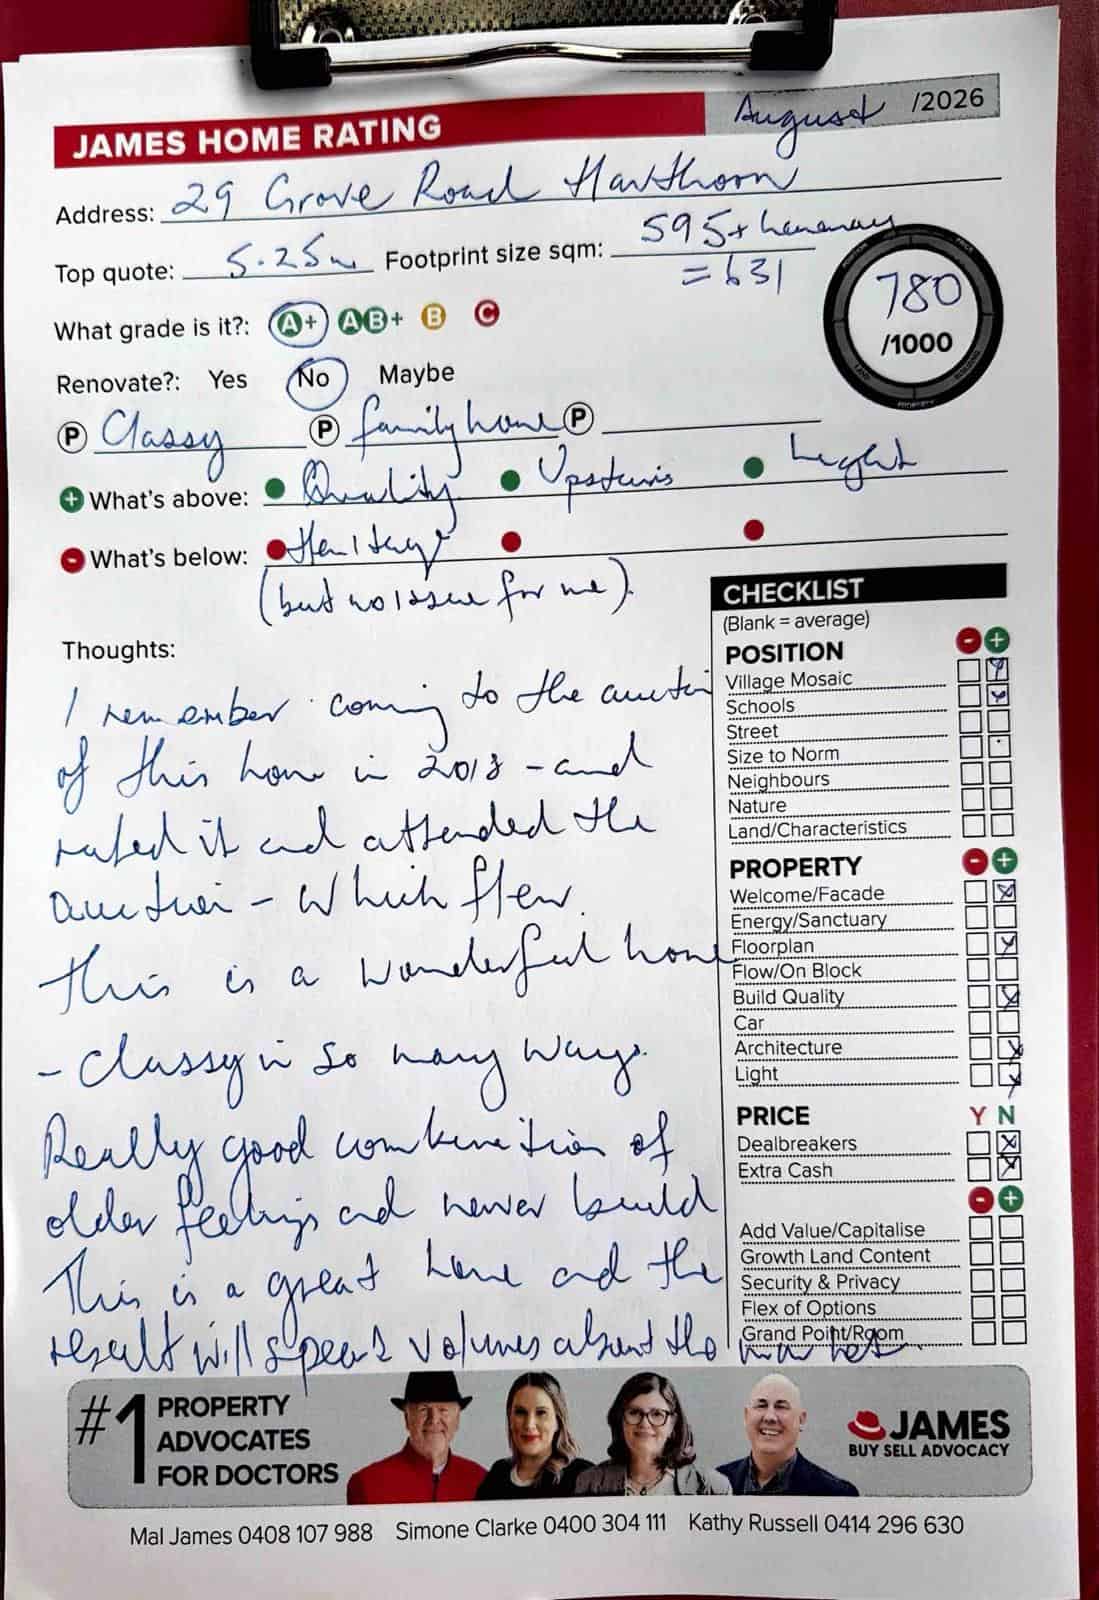 JAMES HOME RATING
August /2026
Address: 29 Grove Road Hawthorn
Top quote: 5.25m Footprint size sqm: 595 + laneway
= 631
780
/1000
What grade is it?: A+ AB+ B C
Renovate?: Yes No Maybe
P Classy P family home P
+ What's above: Quality Upstairs Light
- What's below: Heritage
(but no issue for me).
Thoughts:
I remember coming to the auction
of this home in 2018 - and
rated it and attended the
auction - which flew.
This is a wonderful home
- Classy in so many ways.
Really good combination of
older feelings and newer build
This is a great home and the
result will speak volumes about the market.
CHECKLIST
(Blank = average)
POSITION - +
Village Mosaic
Schools
Street
Size to Norm
Neighbours
Nature
Land/Characteristics
PROPERTY - +
Welcome/Facade
Energy/Sanctuary
Floorplan
Flow/On Block
Build Quality
Car
Architecture
Light
PRICE Y N
Dealbreakers
Extra Cash
- +
Add Value/Capitalise
Growth Land Content
Security & Privacy
Flex of Options
Grand Point/Room
#1 PROPERTY
ADVOCATES
FOR DOCTORS
JAMES
BUY SELL ADVOCACY
Mal James 0408 107 988 Simone Clarke 0400 304 111 Kathy Russell 0414 296 630